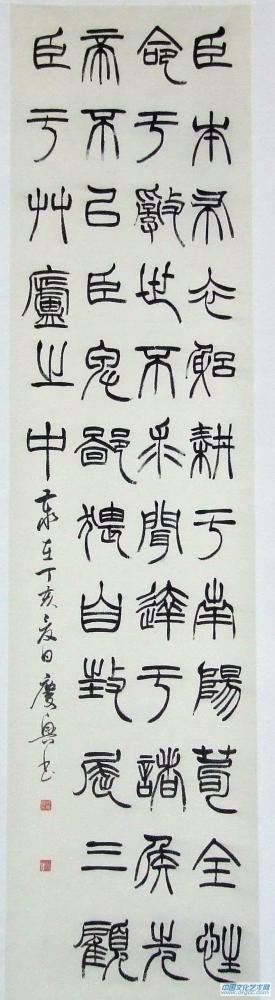 臣本布衣躬耕于南陽苟全性
命于亂世不求聞達于諸侯先
帝不㠯臣卑鄙猥自枉屈三顧
臣于艸廬之中
歲在丁亥夏日慶興書
中国文化艺术网
www.orgcc.com